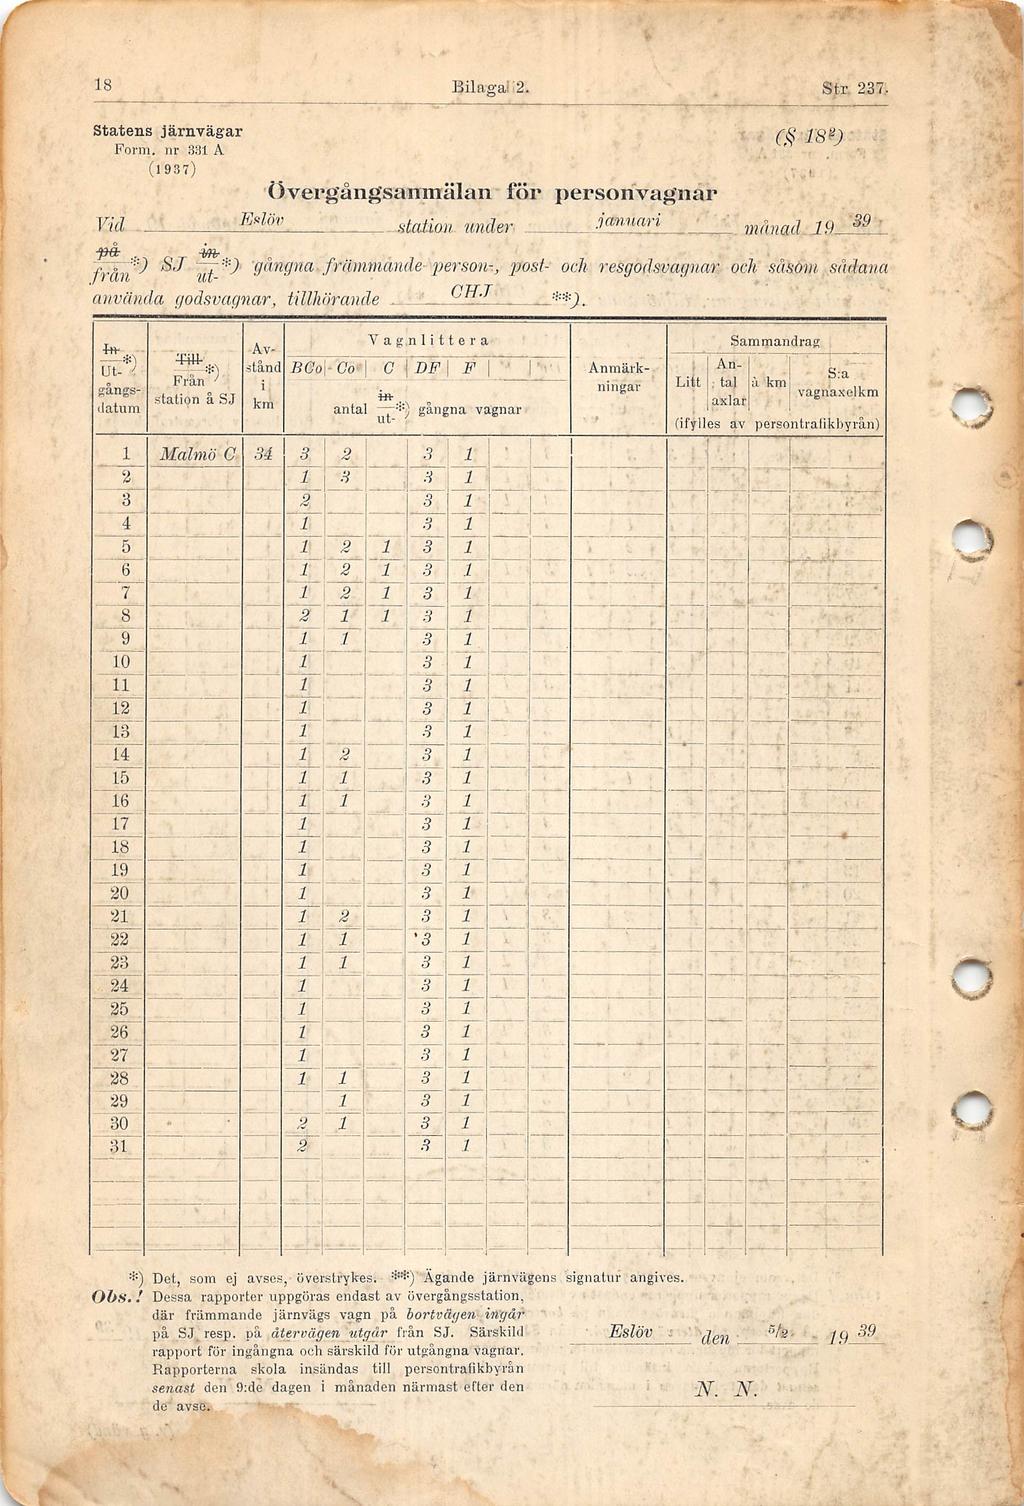 18 Bilaga 2. Str 237.
Statens järnvägar (§ 18²)
Form. nr 331 A
(1937)
Övergångsanmälan för personvagnar
Vid Eslöv station under januari månad 1939
på från*) SJ in- ut-*) gångna främmande person-, post- och resgodsvagnar och såsom sådana
använda godsvagnar, tillhörande CHJ **).
In- Ut-*) gångs- datum
Till Från*) station å SJ
Av- stånd i km
Vagnlittera
BCo Co C DF F
antal in- ut-*) gångna vagnar
Anmärk- ningar
Sammandrag
Litt An- tal axlar à km S:a vagnaxelkm
(ifylles av persontrafikbyrån)
1 Malmö C 34 3 2 3 1
2 1 3 3 1
3 2 3 1
4 1 3 1
5 1 2 1 3 1
6 1 2 1 3 1
7 1 2 1 3 1
8 2 1 1 3 1
9 1 1 3 1
10 1 3 1
11 1 3 1
12 1 3 1
13 1 3 1
14 1 2 3 1
15 1 1 3 1
16 1 1 3 1
17 1 3 1
18 1 3 1
19 1 3 1
20 1 3 1
21 1 2 3 1
22 1 1 3 1
23 1 1 3 1
24 1 3 1
25 1 3 1
26 1 3 1
27 1 3 1
28 1 1 3 1
29 1 3 1
30 2 1 3 1
31 2 3 1
*) Det, som ej avses, överstrykes. **) Ägande järnvägens signatur angives.
Obs.! Dessa rapporter uppgöras endast av övergångsstation,
där främmande järnvägs vagn på bortvägen ingår
på SJ resp. på återvägen utgår från SJ. Särskild
rapport för ingångna och särskild för utgångna vagnar.
Rapporterna skola insändas till persontrafikbyrån
senast den 9:de dagen i månaden närmast efter den
de avse.
Eslöv den 5/2 1939
N. N.